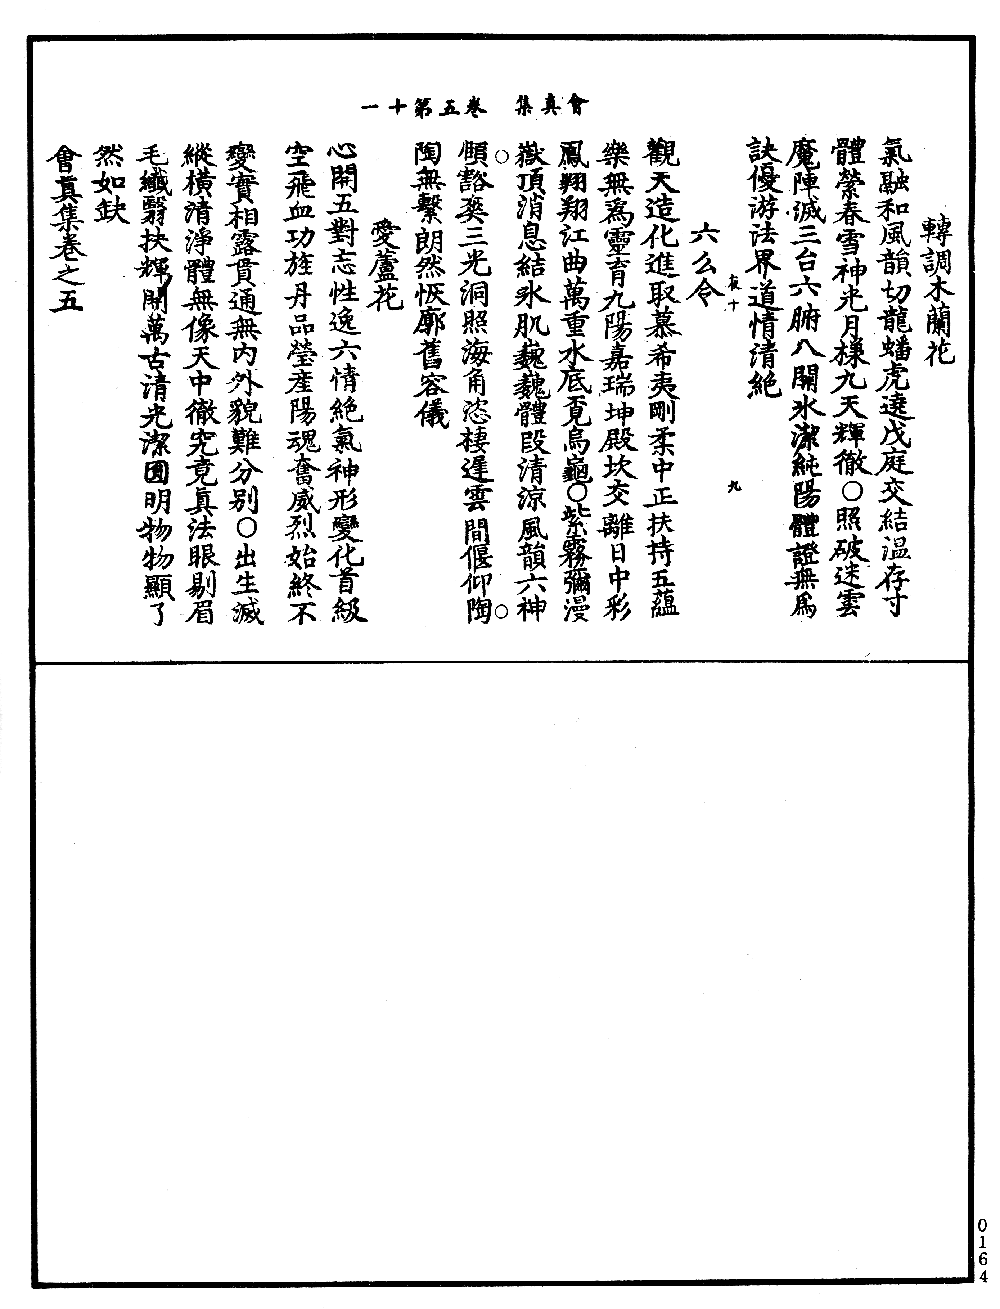 會真集　卷五第十一
轉調木蘭花
氣融和風韻切龍蟠虎遶戊庭交結温存寸
體縈春雪神光月樣九天輝徹○照破迷雲
魔陣滅三台六腑八關氷潔純陽體證無爲
訣優游法界道情清絶
六么令
夜十
九
觀天造化進取慕希夷剛柔中正扶持五蘊
樂無爲靈育九陽嘉瑞坤殿坎交離日中彩
鳳翔翔江曲萬重水底覓烏龜○紫霧彌漫
嶽頂消息結氷肌巍巍體段清涼風韻六神
○傾豁爽三光洞照海角恣棲遲雲間偃仰陶○
陶無繫朗然恢廓舊容儀
愛蘆花
心開五對忘性逸六情絶氣神形變化首級
空飛血功旌丹品瑩産陽魂奮威烈始終不
變實相露貫通無內外貌難分別○出生滅
縱橫清淨體無像天中徹究竟真法眼剔眉
毛纖翳抉輝開萬古清光潔圓明物物顯了
然如缺
會真集卷之五
0164